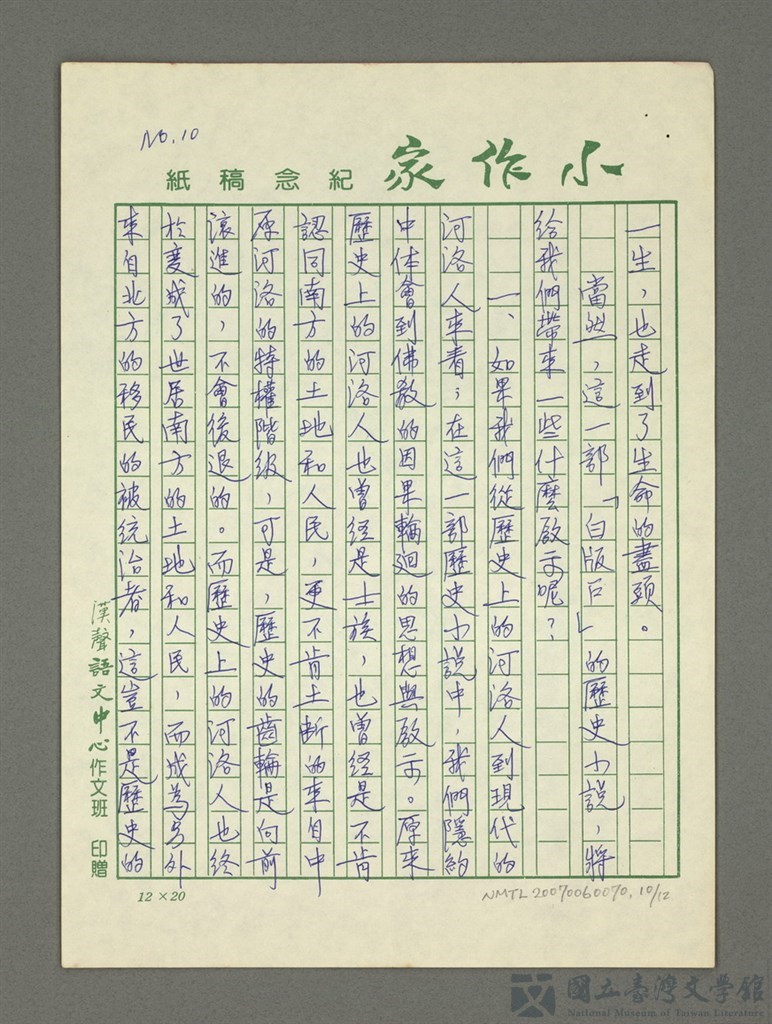 No.10
小作家 紀念稿紙
一生，也走到了生命的盡頭。
當然，這一部「白版戶」的歷史小説，將
給我們帶來一些什麼啟示呢？
一、如果我們從歷史上的河洛人到現代的
河洛人來看；在這一部歷史小説中，我們隱約
中体會到佛教的因果輪廻的思想與啟示。原來
歷史上的河洛人也曾經是士族，也曾經是不肯
認同南方的土地和人民，更不肯土断的來自中
原河洛的特權階級，可是，歷史的齒輪是向前
滾進的，不會後退的。而歷史上的河洛人也終
於変成了世居南方的土地和人民，而成為另外
來自北方的移民的被統治者，這豈不是歷史的
漢聲語文中心作文班 印贈
12×20
NMTL20070060070，10/12
國立臺灣文學館
National Museum of Taiwan Literature